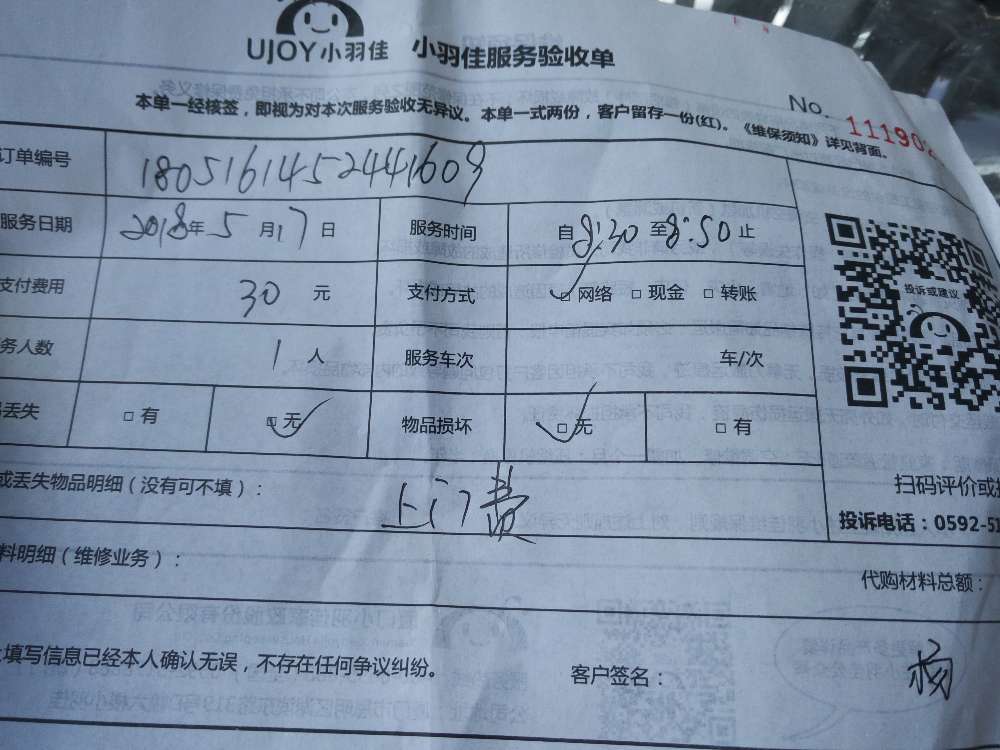 UJOY小羽佳 小羽佳服务验收单
No. 11190
本单一经核签，即视为对本次服务验收无异议。本单一式两份，客户留存一份(红)。《维保须知》详见背面。
订单编号 18051614524441609
服务日期 2018年5月17日 服务时间 自8:30至8:50止
支付费用 30元 支付方式 网络 现金 转账
务人数 1人 服务车次 车/次
丢失 有 无 物品损坏 无 有
投诉或建议
或丢失物品明细（没有可不填）： 上门费
扫码评价或
投诉电话：0592-5
料明细（维修业务）： 代购材料总额：
填写信息已经本人确认无误，不存在任何争议纠纷。 客户签名： 杨